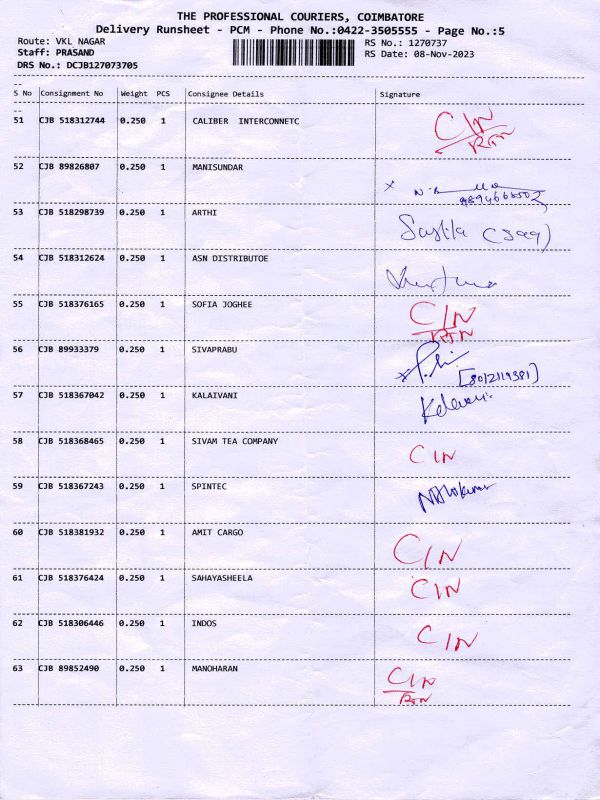 THE PROFESSIONAL COURIERS, COIMBATORE
Delivery Runsheet - PCM - Phone No.:0422-3505555 - Page No.:5
Route: VKL NAGAR RS No.: 1270737
Staff: PRASAND RS Date: 08-Nov-2023
DRS No.: DCJB127073705
S No Consignment No Weight PCS Consignee Details Signature
51 CJB 518312744 0.250 1 CALIBER INTERCONNETC C/N
RTN
52 CJB 89826807 0.250 1 MANISUNDAR
53 CJB 518298739 0.250 1 ARTHI
54 CJB 518312624 0.250 1 ASN DISTRIBUTOE
55 CJB 518376165 0.250 1 SOFIA JOGHEE C/N
RTN
56 CJB 89933379 0.250 1 SIVAPRABU
[8012119381]
57 CJB 518367042 0.250 1 KALAIVANI
58 CJB 518368465 0.250 1 SIVAM TEA COMPANY C/N
59 CJB 518367243 0.250 1 SPINTEC
60 CJB 518381932 0.250 1 AMIT CARGO C/N
61 CJB 518376424 0.250 1 SAHAYASHEELA C/N
62 CJB 518306446 0.250 1 INDOS C/N
63 CJB 89852490 0.250 1 MANOHARAN C/N
RTN